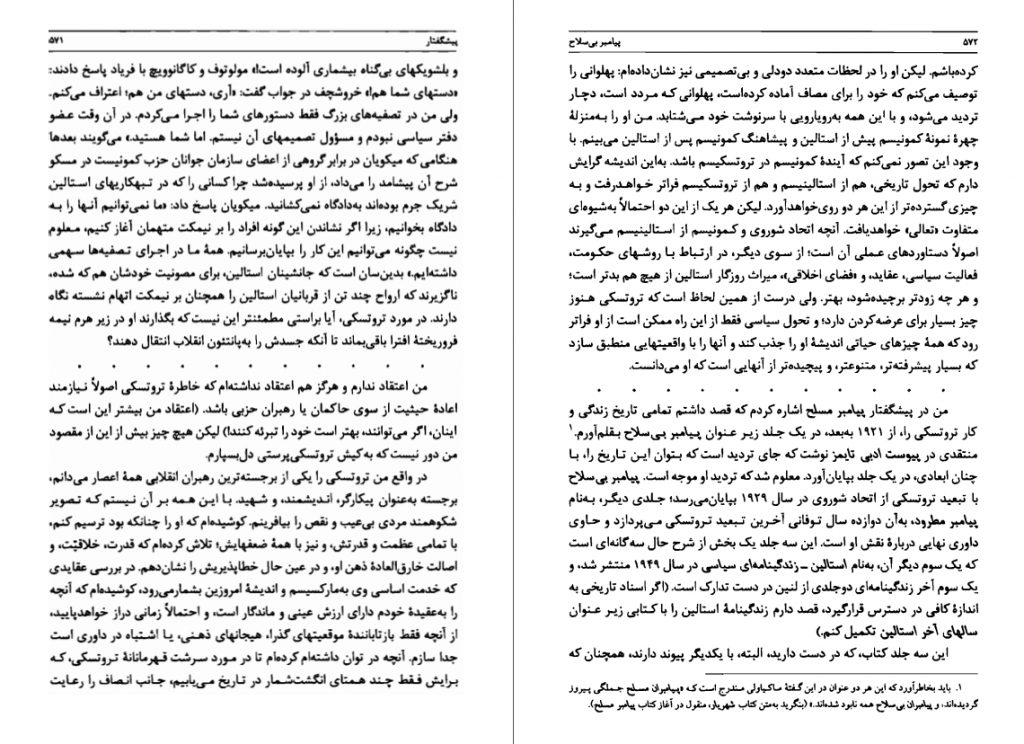 پیشگفتار ۵۷۱
و بلشویکهای بی‌گناه بیشماری آلوده است!» مولوتوف و کاگانوویچ با فریاد پاسخ دادند:
«دستهای شما هم!» خروشچف در جواب گفت: «آری، دستهای من هم؛ اعتراف می‌کنم.
ولی من در تصفیه‌های بزرگ فقط دستورهای شما را اجرا می‌کردم. در آن وقت عضو
دفتر سیاسی نبودم و مسؤول تصمیمهای آن نیستم. اما شما هستید.» می‌گویند بعدها
هنگامی که میکویان در برابر گروهی از اعضای سازمان جوانان حزب کمونیست در مسکو
شرح آن پیشامد را می‌داد، از او پرسیده‌شد چرا کسانی را که در تبهکاریهای استالین
شریک جرم بوده‌اند به‌دادگاه نمی‌کشانید. میکویان پاسخ داد: «ما نمی‌توانیم آنها را به
دادگاه بخوانیم، زیرا اگر نشاندن این گونه افراد را بر نیمکت متهمان آغاز کنیم، معلوم
نیست چگونه می‌توانیم این کار را بپایان‌برسانیم. همهٔ ما در اجرای تصفیه‌ها سهمی
داشته‌ایم.» بدین‌سان است که جانشینان استالین، برای مصونیت خودشان هم که شده،
ناگزیرند که ارواح چند تن از قربانیان استالین را همچنان بر نیمکت اتهام نشسته نگاه
دارند. در مورد تروتسکی، آیا براستی مطمئنتر این نیست که بگذارند او در زیر هرم نیمه
فروریختهٔ افترا باقی‌بماند تا آنکه جسدش را به‌پانتئون انقلاب انتقال دهند؟
. . . . . . . . . . .
من اعتقاد ندارم و هرگز هم اعتقاد نداشته‌ام که خاطرهٔ تروتسکی اصولاً نیازمند
اعادهٔ حیثیت از سوی حاکمان یا رهبران حزبی باشد. (اعتقاد من بیشتر این است که
اینان، اگر می‌توانند، بهتر است خود را تبرئه کنند!) لیکن هیچ چیز بیش از این از مقصود
من دور نیست که به‌کیش تروتسکی‌پرستی دل‌بسپارم.
در واقع من تروتسکی را یکی از برجسته‌ترین رهبران انقلابی همهٔ اعصار می‌دانم،
برجسته به‌عنوان پیکارگر، اندیشمند، و شهید. با این همه بر آن نیستم که تصویر
شکوهمند مردی بی‌عیب و نقص را بیافرینم. کوشیده‌ام که او را چنانکه بود ترسیم کنم،
با تمامی عظمت و قدرتش، و نیز با همهٔ ضعفهایش؛ تلاش کرده‌ام که قدرت، خلاقیّت، و
اصالت خارق‌العادهٔ ذهن او، و در عین حال خطاپذیریش را نشان‌دهم. در بررسی عقایدی
که خدمت اساسی وی به‌مارکسیسم و اندیشهٔ امروزین بشمارمی‌رود، کوشیده‌ام که آنچه
را به‌عقیدهٔ خودم دارای ارزش عینی و ماندگار است، و احتمالاً زمانی دراز خواهدپایید،
از آنچه فقط بازتابانندهٔ موقعیتهای گذرا، هیجانهای ذهنی، یا اشتباه در داوری است
جدا سازم. آنچه در توان داشته‌ام کرده‌ام تا در مورد سرشت قهرمانانهٔ تروتسکی، که
برایش فقط چند همتای انگشت‌شمار در تاریخ می‌یابیم، جانب انصاف را رعایت
۵۷۲ پیامبر بی‌سلاح
کرده‌باشم. لیکن او را در لحظات متعدد دودلی و بی‌تصمیمی نیز نشان‌داده‌ام: پهلوانی را
توصیف می‌کنم که خود را برای مصاف آماده کرده‌است، پهلوانی که مردد است، دچار
تردید می‌شود، و با این همه به‌رویارویی با سرنوشت خود می‌شتابد. من او را به‌منزلهٔ
چهرهٔ نمونهٔ کمونیسم پیش از استالین و پیشاهنگ کمونیسم پس از استالین می‌بینم. با
وجود این تصور نمی‌کنم که آیندهٔ کمونیسم در تروتسکیسم باشد. به‌این اندیشه گرایش
دارم که تحول تاریخی، هم از استالینیسم و هم از تروتسکیسم فراتر خواهدرفت و به
چیزی گسترده‌تر از این هر دو روی‌خواهدآورد. لیکن هر یک از این دو احتمالاً به‌شیوه‌ای
متفاوت «تعالی» خواهدیافت. آنچه اتحاد شوروی و کمونیسم از استالینیسم می‌گیرند
اصولاً دستاوردهای عملی آن است؛ از سوی دیگر، در ارتباط با روشهای حکومت،
فعالیت سیاسی، عقاید، و «فضای اخلاقی»، میراث روزگار استالین از هیچ هم بدتر است؛
و هر چه زودتر برچیده‌شود، بهتر. ولی درست از همین لحاظ است که تروتسکی هنوز
چیز بسیار برای عرضه‌کردن دارد؛ و تحول سیاسی فقط از این راه ممکن است از او فراتر
رود که همهٔ چیزهای حیاتی اندیشهٔ او را جذب کند و آنها را با واقعیتهایی منطبق سازد
که بسیار پیشرفته‌تر، متنوعتر، و پیچیده‌تر از آنهایی است که او می‌دانست.
. . . . . . . . . .
من در پیشگفتار پیامبر مسلح اشاره کردم که قصد داشتم تمامی تاریخ زندگی و
کار تروتسکی را، از ۱۹۲۱ به‌بعد، در یک جلد زیر عنوان پیامبر بی‌سلاح بقلم‌آورم.۱
منتقدی در پیوست ادبی تایمز نوشت که جای تردید است که بتوان این تاریخ را، با
چنان ابعادی، در یک جلد بپایان‌آورد. معلوم شد که تردید او موجه است. پیامبر بی‌سلاح
با تبعید تروتسکی از اتحاد شوروی در سال ۱۹۲۹ بپایان‌می‌رسد؛ جلدی دیگر، به‌نام
پیامبر مطرود، به‌آن دوازده سال توفانی آخرین تبعید تروتسکی می‌پردازد و حاوی
داوری نهایی دربارهٔ نقش او است. این سه جلد یک بخش از شرح حال سه‌گانه‌ای است
که یک سوم دیگر آن، به‌نام استالین ـ زندگینامه‌ای سیاسی در سال ۱۹۴۹ منتشر شد، و
یک سوم آخر زندگینامه‌ای دوجلدی از لنین در دست تدارک است. (اگر اسناد تاریخی به
اندازهٔ کافی در دسترس قرارگیرد، قصد دارم زندگینامهٔ استالین را با کتابی زیر عنوان
سالهای آخر استالین تکمیل کنم.)
این سه جلد کتاب، که در دست دارید، البته، با یکدیگر پیوند دارند، همچنان که
۱. باید بخاطرآورد که این هر دو عنوان در این گفتهٔ ماکیاولی مندرج است که «پیامبران مسلح جملگی پیروز
گردیده‌اند، و پیامبران بی‌سلاح همه نابود شده‌اند.» (بنگرید به‌متن کتاب شهریار، منقول در آغاز کتاب پیامبر مسلح).